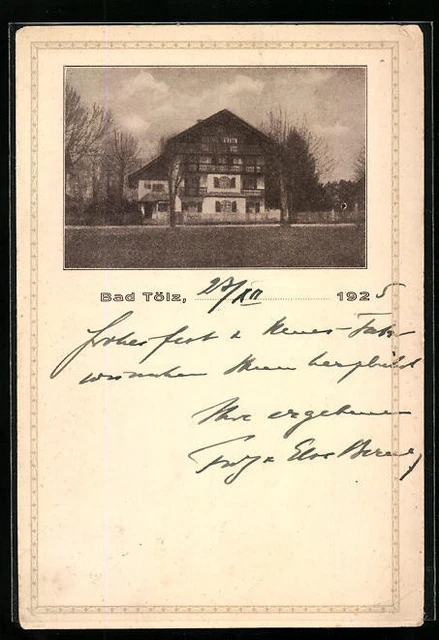 Bad Tölz, 27/XII 1925
Frohes fest & Neues-Jahr
wünschen Ihnen herzlichst
Ihre ergebenen
Fritz & Else